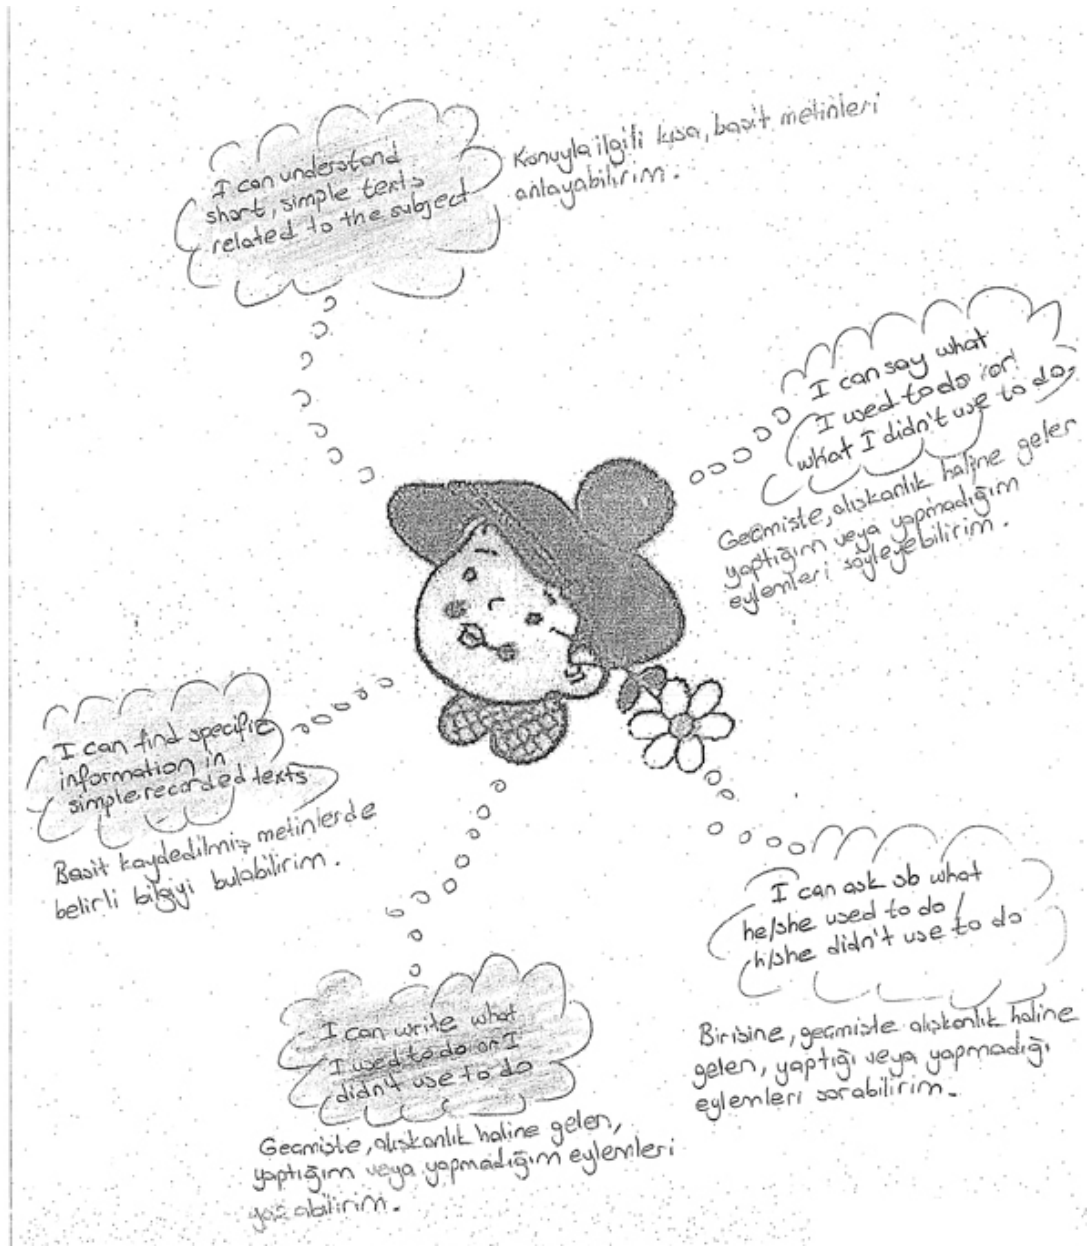 I can understand
short, simple texts
related to the subject
Konuyla ilgili kısa, basit metinleri
anlayabilirim.
I can say what
I used to do /or/
what I didn't use to do,
Geçmişte, alışkanlık haline gelen
yaptığım veya yapmadığım
eylemleri söyleyebilirim.
I can find specific
information in
simple recorded texts
Basit kaydedilmiş metinlerde
belirli bilgiyi bulabilirim.
I can ask sb what
he/she used to do /
h/she didn't use to do
Birisine, geçmişte alışkanlık haline
gelen, yaptığı veya yapmadığı
eylemleri sorabilirim.
I can write what
I used to do or I
didn't use to do
Geçmişte, alışkanlık haline gelen,
yaptığım veya yapmadığım eylemleri
yazabilirim.